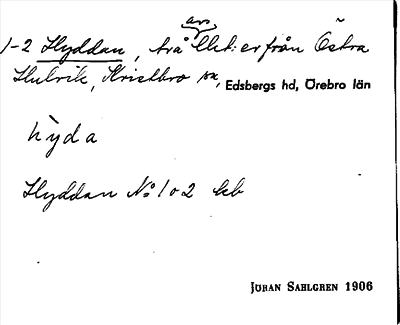 avs
1-2 Hyddan, två lht:er från Östra
Hulvik, Kristbro sn, Edsbergs hd, Örebro län
hyda
Hyddan No 1 o 2 kb
JÖRAN SAHLGREN 1906